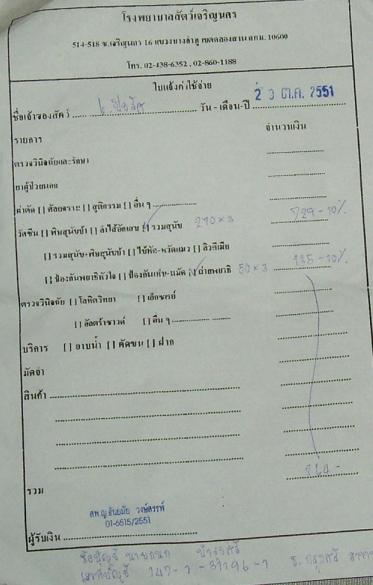 โรงพยาบาลสัตว์เจริญนคร
514-518 ซ.เจริญนคร 16 แขวงบางลำภู เขตคลองสาน กทม. 10600
โทร. 02-438-6352 , 02-860-1188
ใบแจ้งค่าใช้จ่าย
ชื่อเจ้าของสัตว์ วัน - เดือน - ปี 2 3 ต.ค. 2551
รายการ จำนวนเงิน
ตรวจวินิจฉัยและรักษา
ยาผู้ป่วยนอก
ผ่าตัด [ ] ศัลยกรรม [ ] สูติกรรม [ ] อื่น ๆ
วัคซีน [ ] พิษสุนัขบ้า [ ] ลำไส้อักเสบ [/] รวมสุนัข 270 x 3 729 - 10%
[ ] รวมสุนัข-พิษสุนัขบ้า [ ] ไข้หัด-หวัดแมว [ ] ลิวคีเมีย
[ ] ป้องกันพยาธิหัวใจ [ ] ป้องกันเห็บ-หมัด [/] ถ่ายพยาธิ 50 x 3 135 - 10%
ตรวจวินิจฉัย [ ] โลหิตวิทยา [ ] เอ็กซเรย์
[ ] อัลตร้าซาวด์ [ ] อื่น ๆ
บริการ [ ] อาบน้ำ [ ] ตัดขน [ ] ฝาก
มัดจำ
สินค้า
รวม 864 -
01-6515/2551
ผู้รับเงิน
ชื่อบัญชี
เลขที่บัญชี 147-1-37196-1 ธ. กรุงศรี